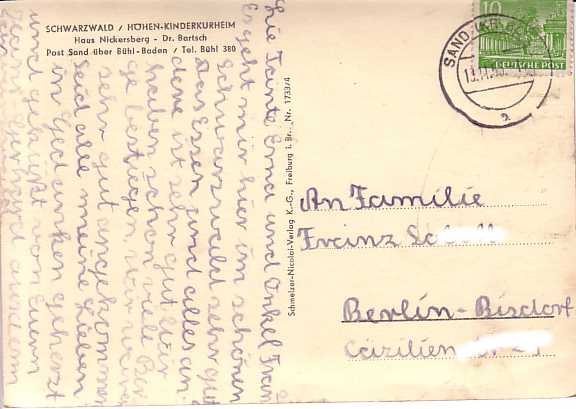 SCHWARZWALD / HÖHEN-KINDERKURHEIM
Haus Nickersberg - Dr. Bartsch
Post Sand über Bühl-Baden / Tel. Bühl 380
10
DEUTSCHE POST
SAND
Schmelzer-Nicolai-Verlag K.-G., Freiburg i. Br., Nr. 1733/4
Tante Erna und Onkel Franz
Es geht mir hier im schönen
Schwarzwald sehr gut
Das Essen und alles an
dere ist sehr gut Wir
haben schon viele Ber
ge bestiegen
sehr gut angekommen
Seid alle meine Lieben
in Gedanken geherzt
und geküßt von Euerm
An Familie
Franz
Berlin-Bisdorf
Cäzilien